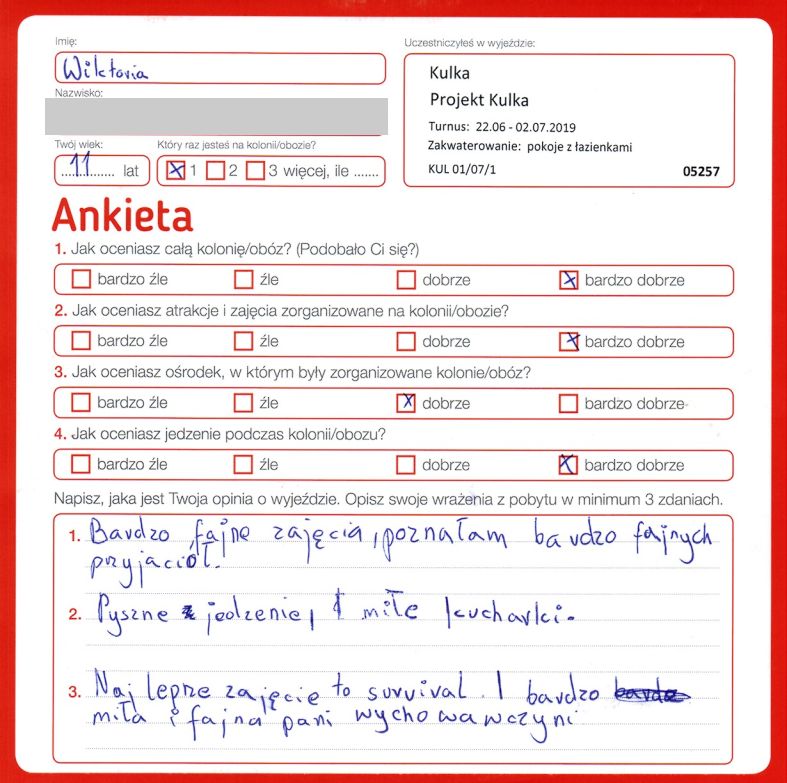 Imię:
Uczestniczyłeś w wyjeździe:
Wiktoria
Kulka
Nazwisko:
Projekt Kulka
Turnus: 22.06 - 02.07.2019
Zakwaterowanie: pokoje z łazienkami
KUL 01/07/1 05257
Twój wiek: Który raz jesteś na kolonii/obozie?
11 lat 1 2 3 więcej, ile .......
Ankieta
1. Jak oceniasz całą kolonię/obóz? (Podobało Ci się?)
bardzo źle źle dobrze bardzo dobrze
2. Jak oceniasz atrakcje i zajęcia zorganizowane na kolonii/obozie?
bardzo źle źle dobrze bardzo dobrze
3. Jak oceniasz ośrodek, w którym były zorganizowane kolonie/obóz?
bardzo źle źle dobrze bardzo dobrze
4. Jak oceniasz jedzenie podczas kolonii/obozu?
bardzo źle źle dobrze bardzo dobrze
Napisz, jaka jest Twoja opinia o wyjeździe. Opisz swoje wrażenia z pobytu w minimum 3 zdaniach.
1. Bardzo fajne zajęcia, poznałam bardzo fajnych
przyjaciół.
2. Pyszne jedzenie, I miłe kucharki.
3. Naj leprze zajęcie to survival. I bardzo
miła i fajna pani wychowawczyni